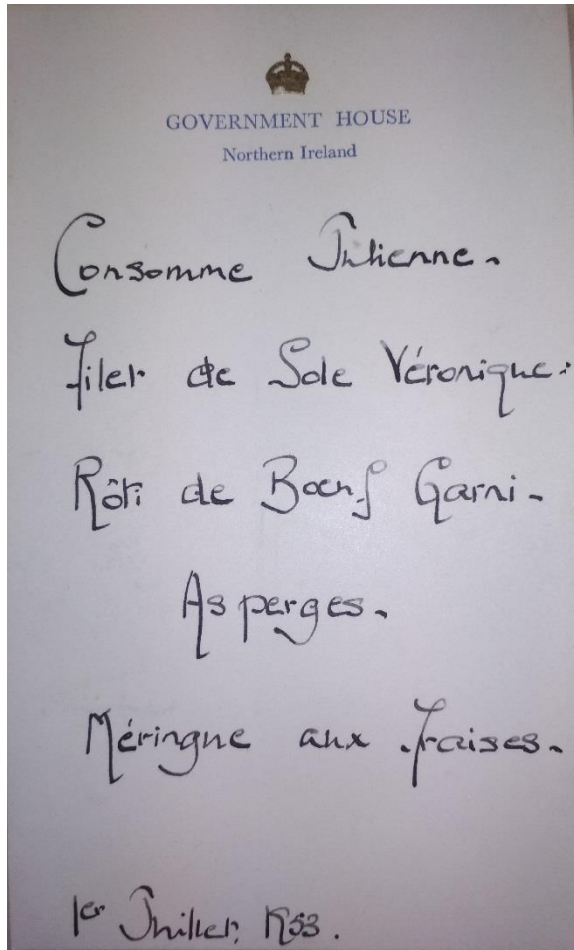 GOVERNMENT HOUSE
Northern Ireland
Consomme Julienne.
Filet de Sole Véronique.
Rôti de Bœuf Garni.
Asperges.
Méringue aux Fraises.
1er Juillet, 1953.